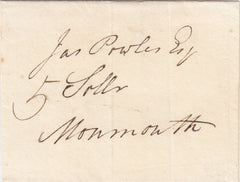 Jas Powles Esq
5 Sollr
Monmouth